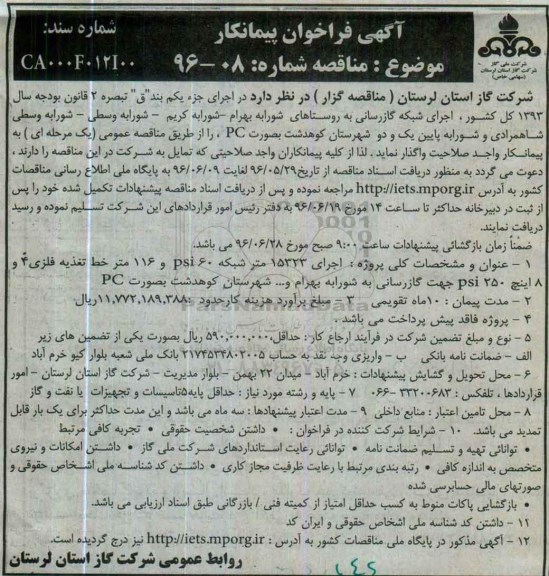 آگهی فراخوان پیمانکار
موضوع : مناقصه شماره: ۰۸–۹۶
شماره سند:
CA۰۰۰F۰۱۲I۰۰
شرکت ملی گاز
شرکت گاز استان لرستان
(سهامی خاص)
شرکت گاز استان لرستان ( مناقصه گزار ) در نظر دارد در اجرای جزء یکم بند"ق" تبصره ۲ قانون بودجه سال
۱۳۹۳ کل کشور ، اجرای شبکه گازرسانی به روستاهای شورابه بهرام –شورابه کریم – شورابه وسطی – شورابه وسطی
شاهمرادی و شورابه پایین یک و دو شهرستان کوهدشت بصورت PC ، را از طریق مناقصه عمومی (یک مرحله ای ) به
پیمانکار واجد صلاحیت واگذار نماید . لذا از کلیه پیمانکاران واجد صلاحیتی که تمایل به شرکت در این مناقصه را دارند ،
دعوت می گردد به منظور دریافت اسناد مناقصه از تاریخ۹۶/۰۵/۲۹ لغایت ۹۶/۰۶/۰۹ به پایگاه ملی اطلاع رسانی مناقصات
کشور به آدرس http://iets.mporg.ir مراجعه نموده و پس از دریافت اسناد مناقصه پیشنهادات تکمیل شده خود را پس
از ثبت در دبیرخانه حداکثر تا ساعت ۱۴ مورخ ۹۶/۰۶/۱۹ به دفتر رئیس امور قراردادهای این شرکت تسلیم نموده و رسید
دریافت نمایند.
ضمناً زمان بازگشائی پیشنهادات ساعت ۹:۰۰ صبح مورخ ۹۶/۰۶/۲۸ می باشد.
۱ – عنوان و مشخصات کلی پروژه : اجرای ۱۵۳۲۳ متر شبکه ۶۰ psi و ۱۱۶ متر خط تغذیه فلزی۴ و
۸ اینچ ۲۵۰ psi جهت گازرسانی به شورابه بهرام و... شهرستان کوهدشت بصورت PC
۲ – مدت پیمان : ۱۰ماه تقویمی ۳ – مبلغ برآورد هزینه کارحدود :۱۱,۷۷۲,۱۸۹,۳۸۸ریال
۴ – پروژه فاقد پیش پرداخت می باشد .
۵ – نوع و مبلغ تضمین شرکت در فرآیند ارجاع کار : حداقل۵۹۰,۰۰۰,۰۰۰ ریال بصورت یکی از تضمین های زیر
الف – ضمانت نامه بانکی ب – واریزی وجه نقد به حساب ۲۱۷۴۵۳۴۸۰۲۰۰۵ بانک ملی شعبه بلوار کیو خرم آباد
۶ – محل تحویل و گشایش پیشنهادات : خرم آباد – میدان ۲۲ بهمن – بلوار مدیریت – شرکت گاز استان لرستان – امور
قراردادها ، تلفکس : ۳۳۲۰۰۶۸۳ -۰۶۶ ۷ – پایه و رشته مورد نیاز : حداقل پایه۵تاسیسات و تجهیزات یا نفت و گاز
۸ – محل تامین اعتبار : منابع داخلی ۹ – مدت اعتبار پیشنهادها : سه ماه می باشد و این مدت حداکثر برای یک بار قابل
تمدید می باشد. ۱۰ – شرایط شرکت کننده در فراخوان : • داشتن شخصیت حقوقی • تجربه کافی مرتبط
• توانائی تهیه و تسلیم ضمانت نامه • توانائی رعایت استانداردهای شرکت ملی گاز • داشتن امکانات و نیروی
متخصص به اندازه کافی • رتبه بندی مرتبط با رعایت ظرفیت مجاز کاری • داشتن کد شناسه ملی اشخاص حقوقی و
صورتهای مالی حسابرسی شده
• بازگشایی پاکات منوط به کسب حداقل امتیاز از کمیته فنی / بازرگانی طبق اسناد ارزیابی می باشد.
۱۱ – داشتن کد شناسه ملی اشخاص حقوقی و ایران کد
۱۲ – آگهی مذکور در پایگاه ملی مناقصات کشور به آدرس : http://iets.mporg.ir نیز درج گردیده است.
روابط عمومی شرکت گاز استان لرستان